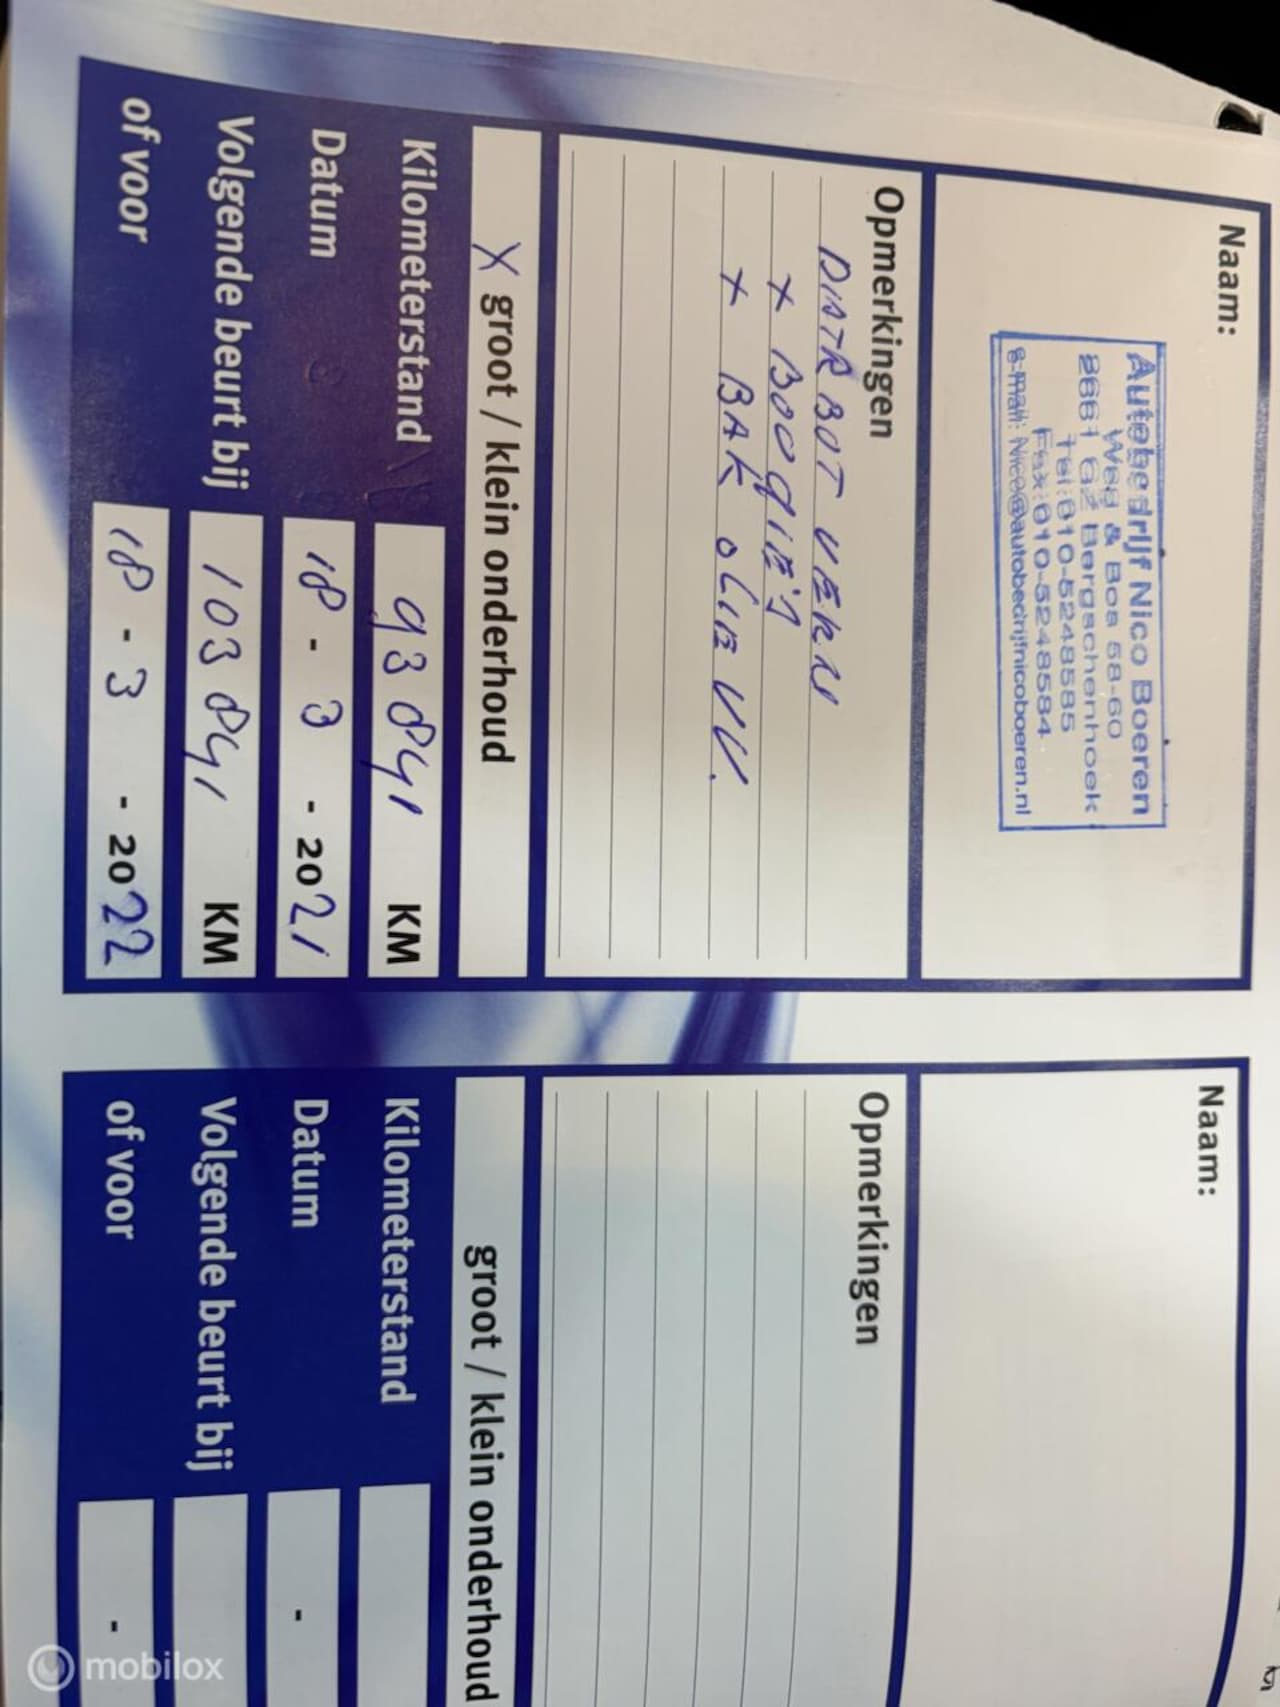 Naam:
Autobedrijf Nico Boeren
Weg & Bos 58-60
2661 GZ Bergschenhoek
Tel:010-5248585
Fax:010-5248584
e-mail: Nico@autobedrijfnicoboeren.nl
Opmerkingen
DISTR BOT VERN
+ BOUGIE'S
+ BAK OLIE VV.
X groot / klein onderhoud
Kilometerstand 93841 KM
Datum 18 - 3 - 2021
Volgende beurt bij 103841 KM
of voor 18 - 3 - 2022
Naam:
Opmerkingen
groot / klein onderhoud
Kilometerstand
Datum -
Volgende beurt bij
of voor -
mobilox